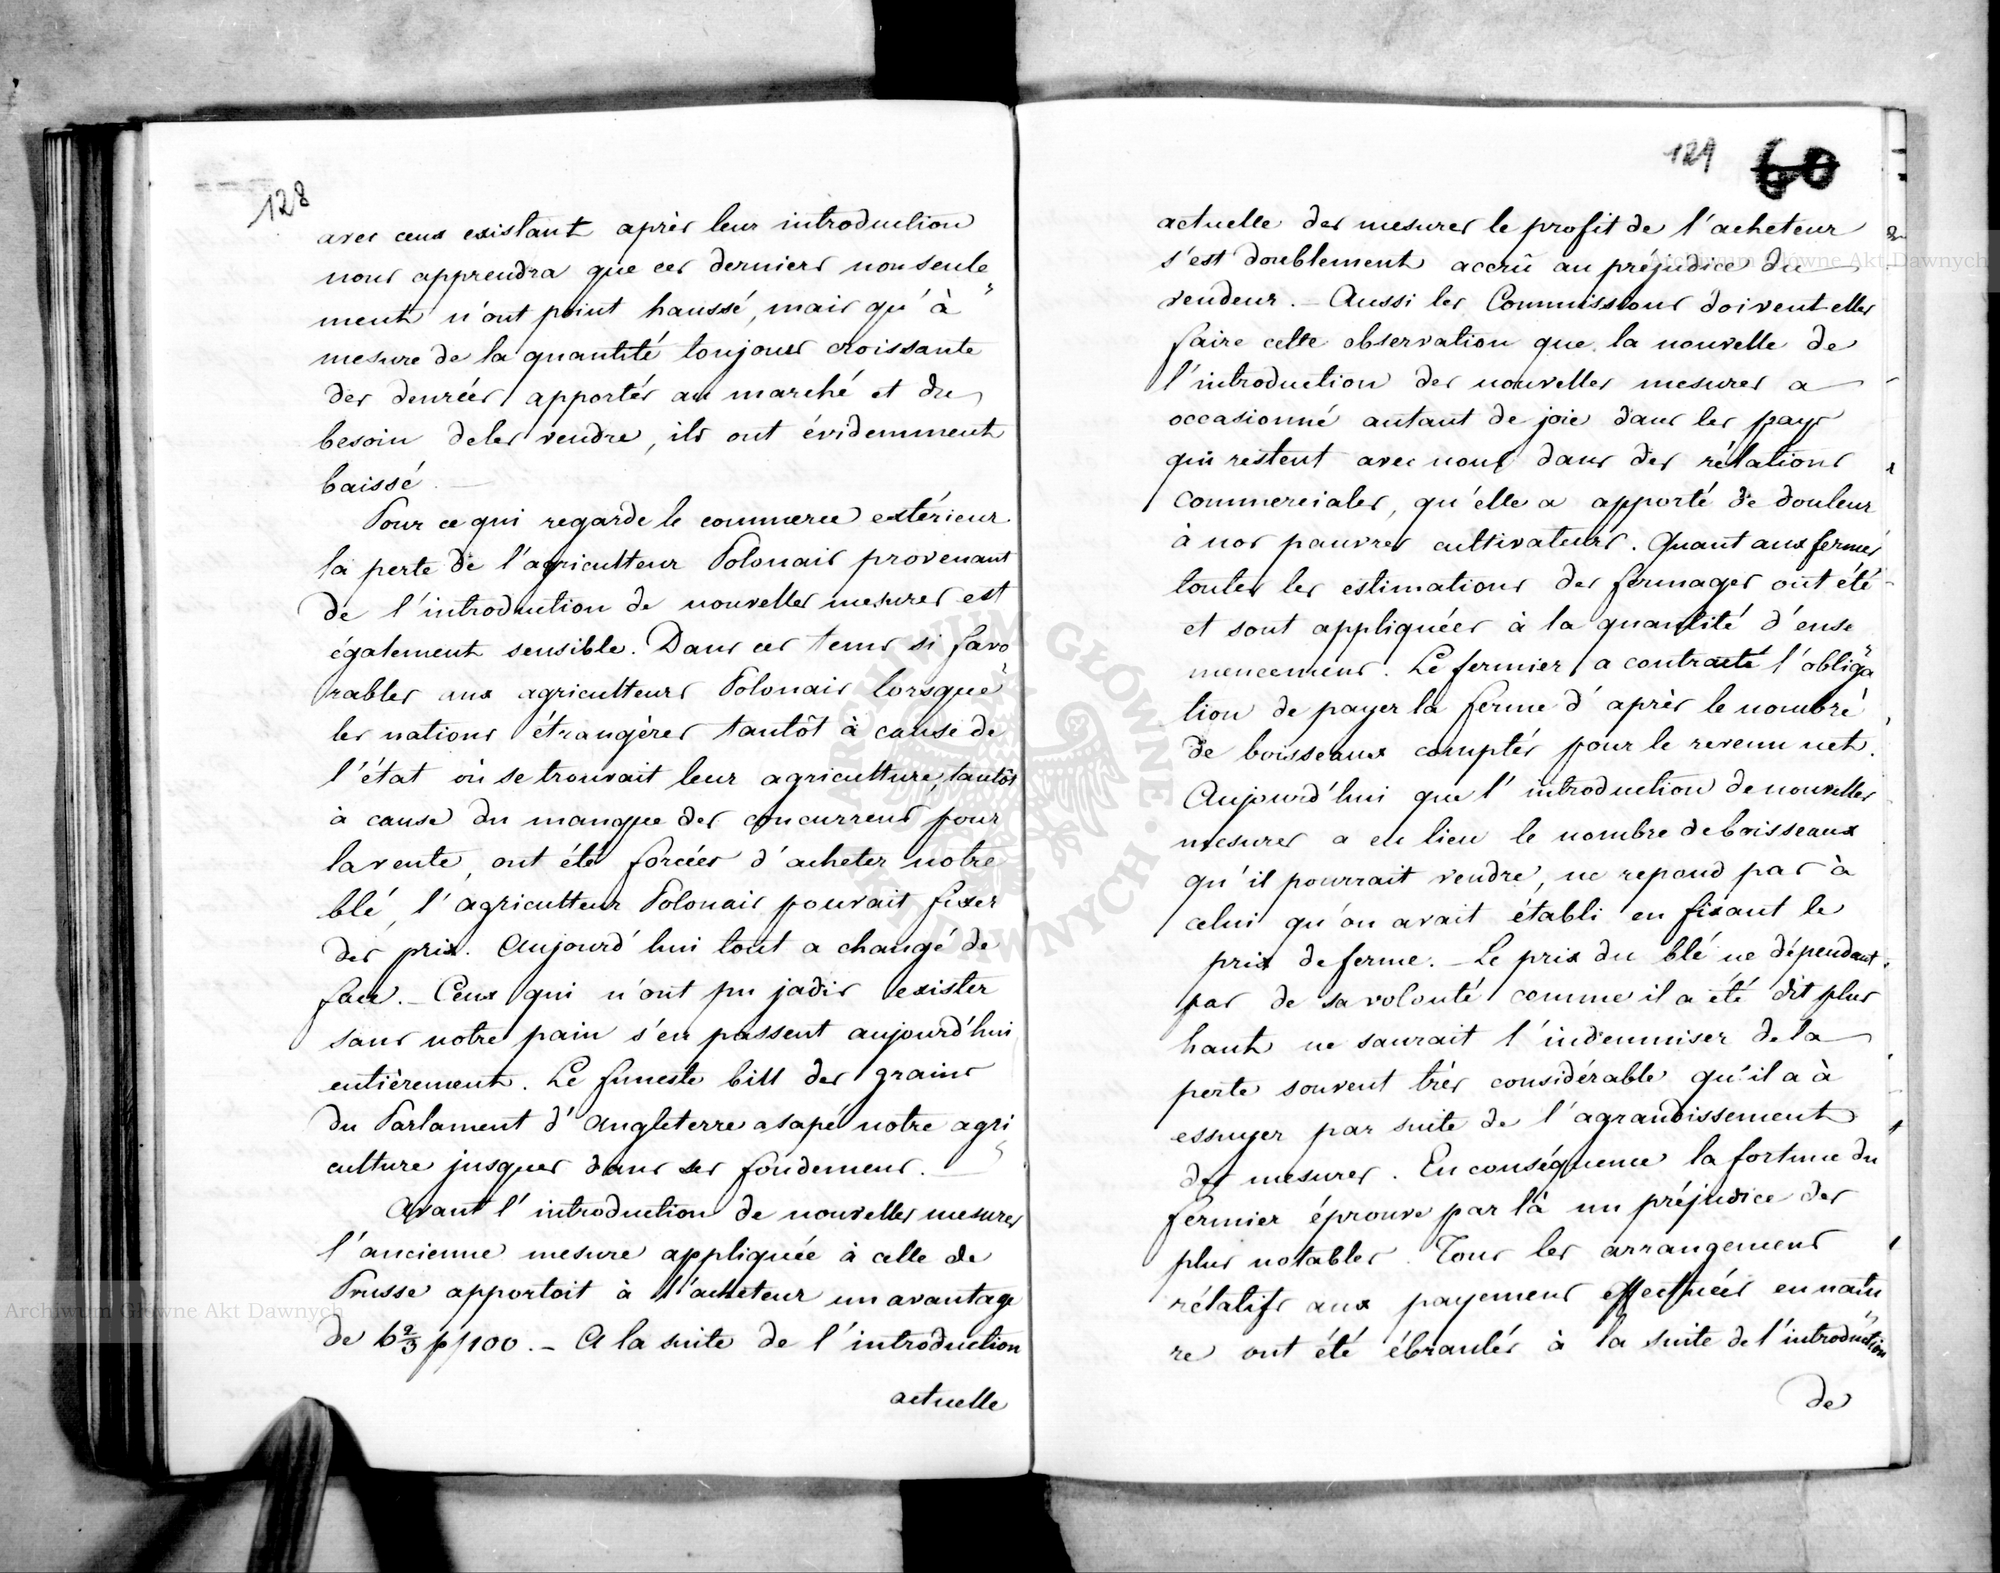 128
avec ceux existant après leur introduction
nous apprendra que ces derniers non seule„
ment n'ont point haussé, mais qu'à
mesure de la quantité toujours croissante
des denrées apportés au marché et du
besoin de les vendre, ils ont évidemment
baissé. —
Pour ce qui regarde le commerce extérieur
la perte de l'agriculteur Polonais provenant
de l'introduction de nouvelles mesures est
également sensible. Dans ces tems si favo„
rables aux agriculteurs Polonais lorsque
les nations étrangères tantôt à cause de
l'état où se trouvait leur agriculture, tantôt
à cause du manque des concurrens pour
la vente, ont été forcées d'acheter notre
blé, l'agriculteur Polonais pouvait fixer
des prix. Aujourd'hui tout a changé de
face. — Ceux qui n'ont pu jadis exister
sans notre pain s'en passent aujourd'hui
entièrement. Le funeste bill des grains
du Parlament d'Angleterre a sapé notre agri„
culture jusques dans ses fondemens. —
Avant l'introduction de nouvelles mesures
l'ancienne mesure appliquée à celle de
Prusse apportoit à l'acheteur un avantage
de 6 2/3 p/100. — A la suite de l'introduction
actuelle
129 60
actuelle des mesures le profit de l'acheteur
s'est doublement accrû au préjudice du
vendeur. — Aussi les Commissions doivent-elles
faire cette observation que la nouvelle de
l'introduction des nouvelles mesures a
occasionné autant de joie dans les pays
qui restent avec nous dans des rélations
commerciales, qu'elle a apporté de douleur
à nos pauvres cultivateurs. Quant aux fermes
toutes les estimations des fermages ont été
et sont appliquées à la quantité d'ense„
mencemens. Le fermier a contracté l'obliga„
tion de payer la ferme d'après le nombre
de boisseaux comptés pour le revenu net.
Aujourd'hui que l'introduction de nouvelles
mesures a eu lieu le nombre de boisseaux
qu'il pourrait vendre, ne repond pas à
celui qu'on avait établi en fixant le
prix de ferme. — Le prix du blé ne dépendant
pas de sa volonté comme il a été dit plus
haut ne saurait l'indemniser de la
perte souvent très considérable qu'il a à
essuyer par suite de l'agrandissement
des mesures. En conséquence la fortune du
fermier éprouve par là un préjudice des
plus notables. Tous les arrangemens
rélatifs aux payemens effectués en natu„
re ont été ébranlés à la suite de l'introduction
de
ARCHIWUM GŁÓWNE AKT DAWNYCH
Archiwum Główne Akt Dawnych
Archiwum Główne Akt Dawnych